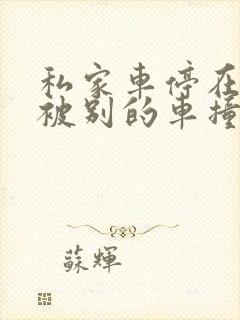 私家車停在
被别的車撞
蘇輝